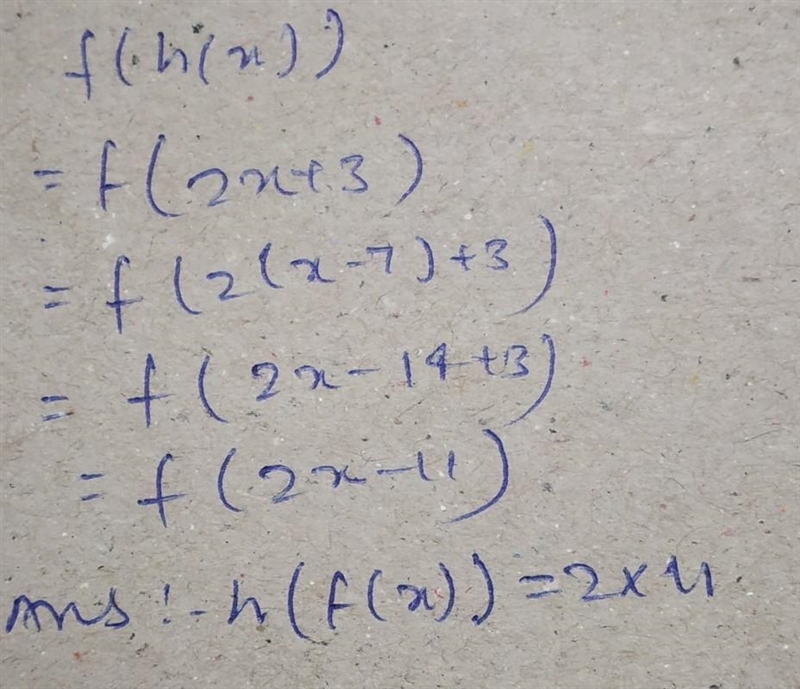 f(h(x))
= f(2x+3)
= f(2(x-7)+3)
= f(2x-14+3)
= f(2x-11)
Ans :- h(f(x)) = 2x 11